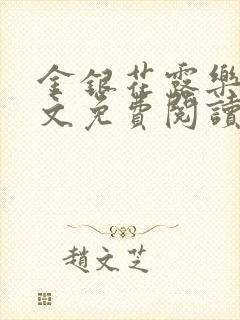 金銀花露樂
文免費閱讀
趙文芝